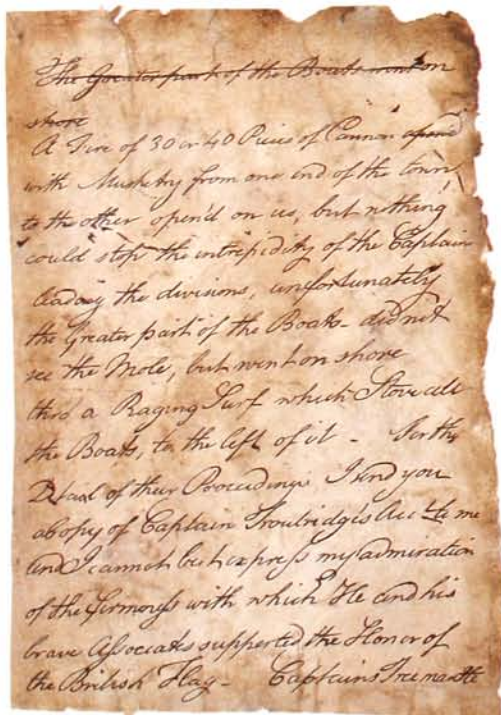 The Greater part of the Boats went on
shore
A Fire of 30 or 40 Pieces of Cannon
with Musketry from one end of the town
to the other open'd on us, but nothing
could stop the intrepidity of the Captain
leading the divisions, unfortunately
the Greater part of the Boats did not
see the Mole, but went on shore
thro a Raging Surf which Stove all
the Boats, to the left of it - For the
Detail of their Proceedings I send you
a Copy of Captain Troubridge's Acc.t to me
and I cannot but express my admiration
of the firmness with which He and his
brave Associates supported the Honor of
the British Flag - Captains Freemantle